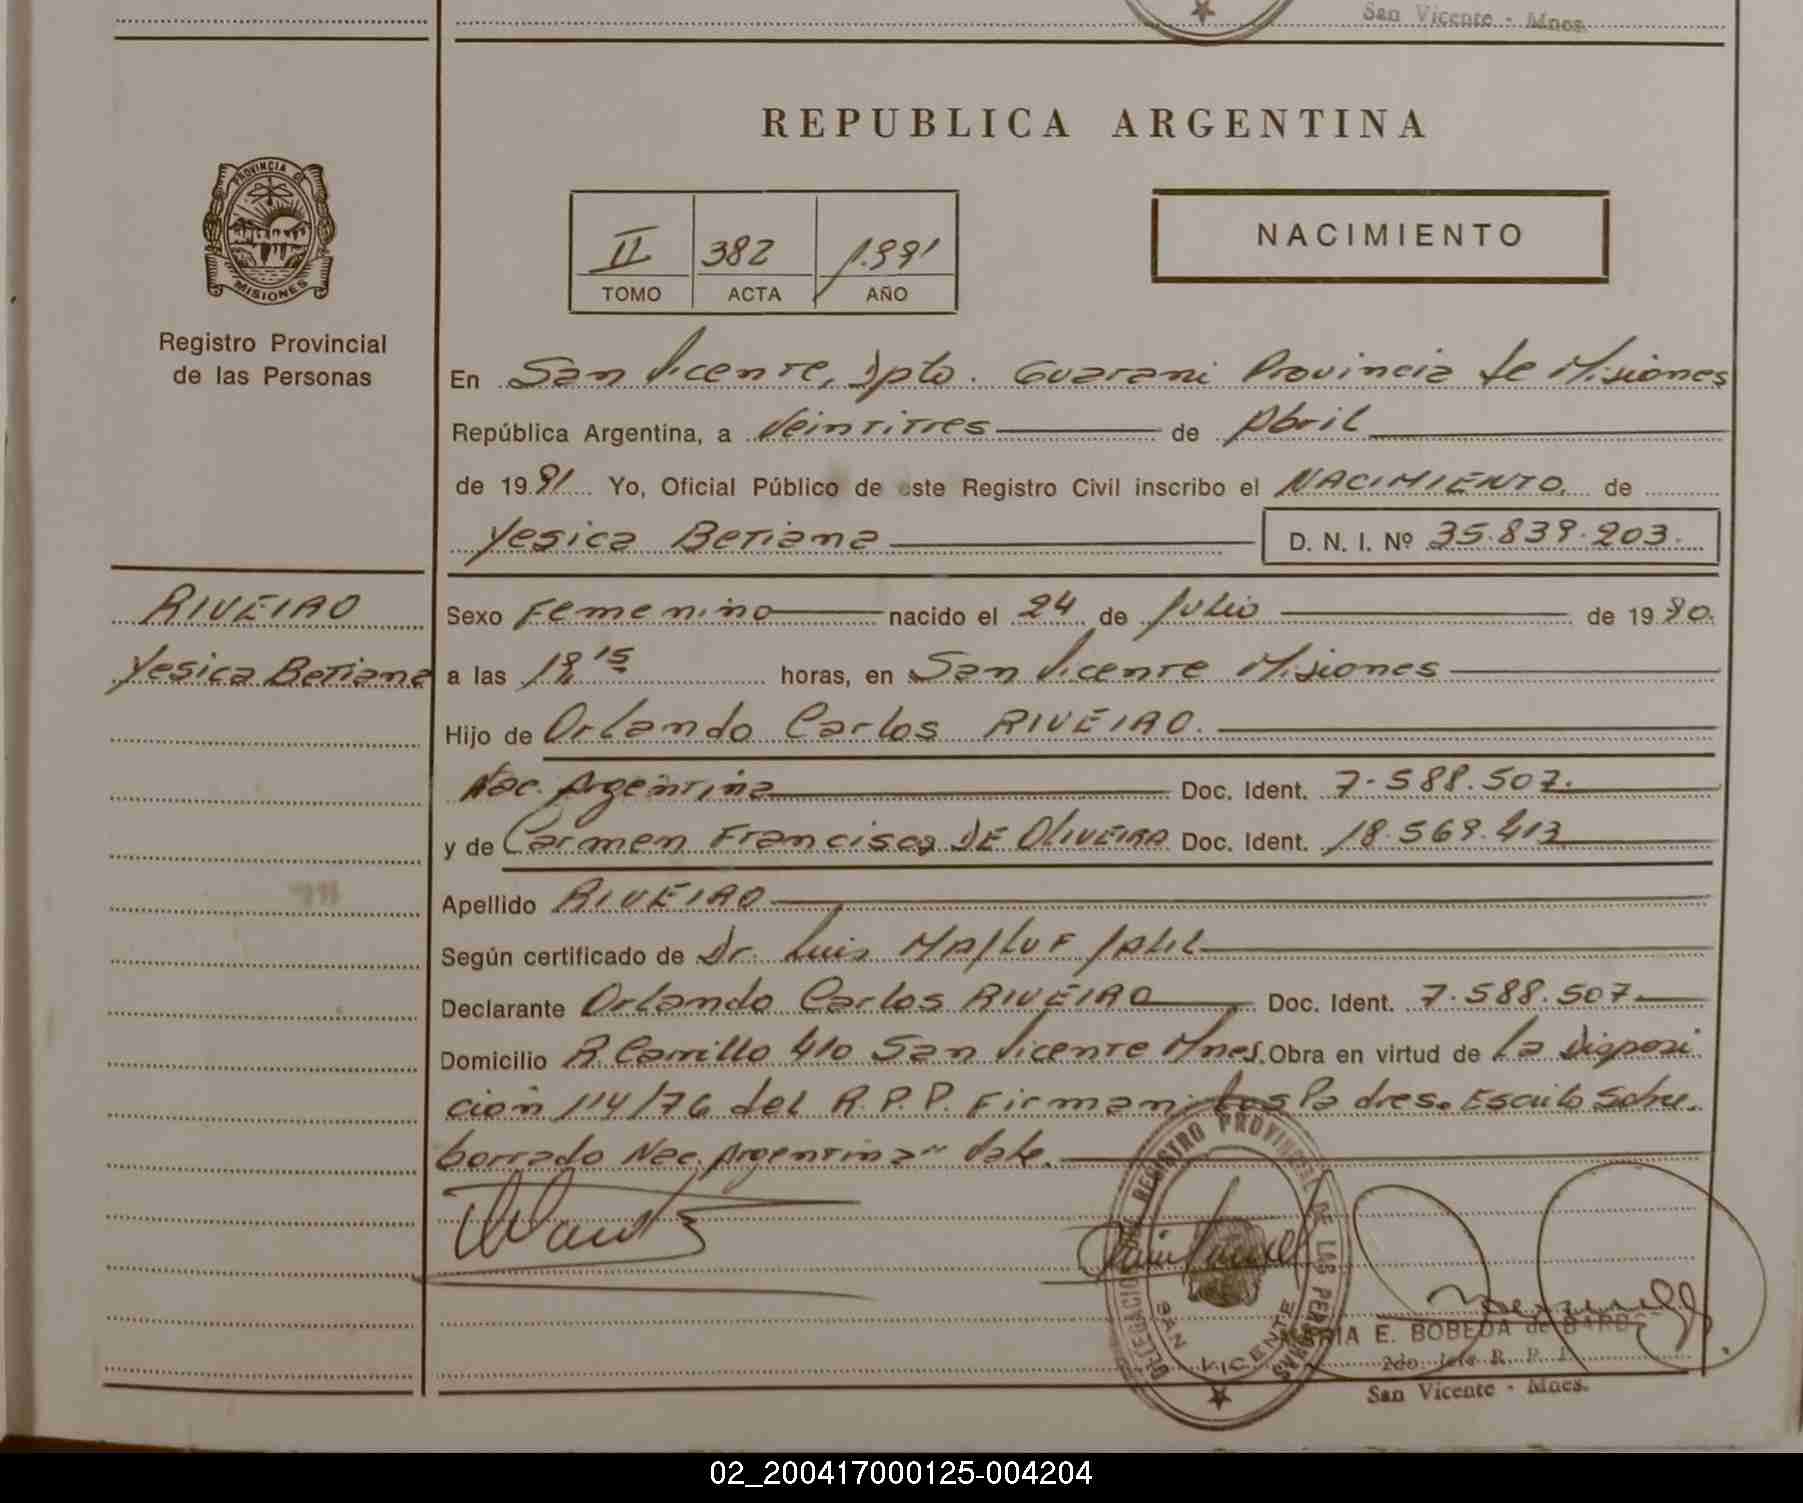 San Vicente - Mnes.
REPUBLICA ARGENTINA
PROVINCIA DE
MISIONES
Registro Provincial
de las Personas
II 382 1.991
TOMO ACTA AÑO
NACIMIENTO
En San Vicente, Dpto. Guarani Provincia de Misiones
República Argentina, a Veintitres de Abril
de 1991 Yo, Oficial Público de este Registro Civil inscribo el NACIMIENTO. de
Yesica Betiana D. N. I. Nº 35.839.203.
RIVEIRO
Yesica Betiana
Sexo Femenino nacido el 24 de Julio de 1990.
a las 18 15 horas, en San Vicente Misiones
Hijo de Orlando Carlos RIVEIRO.
Nac. Argentina Doc. Ident. 7.588.507.
y de Carmen Francisca DE OLIVEIRA Doc. Ident. 18.569.413
Apellido RIVEIRO
Según certificado de Dr. Luis
Declarante Orlando Carlos RIVEIRO Doc. Ident. 7.588.507
Domicilio R. Carrillo 410 San Vicente Mnes. Obra en virtud de La Disposi
ción 114/76 del R.P.P. Firman: Los Padres. Escrito Sobre.
borrado Nac. Argentina" Vale.
DELEGACION REGISTRO PROVINCIAL DE LAS PERSONAS
SAN VICENTE
MARIA E. BOBEDA de
2do. Jefe R. P. P.
San Vicente - Mnes.
02_200417000125-004204